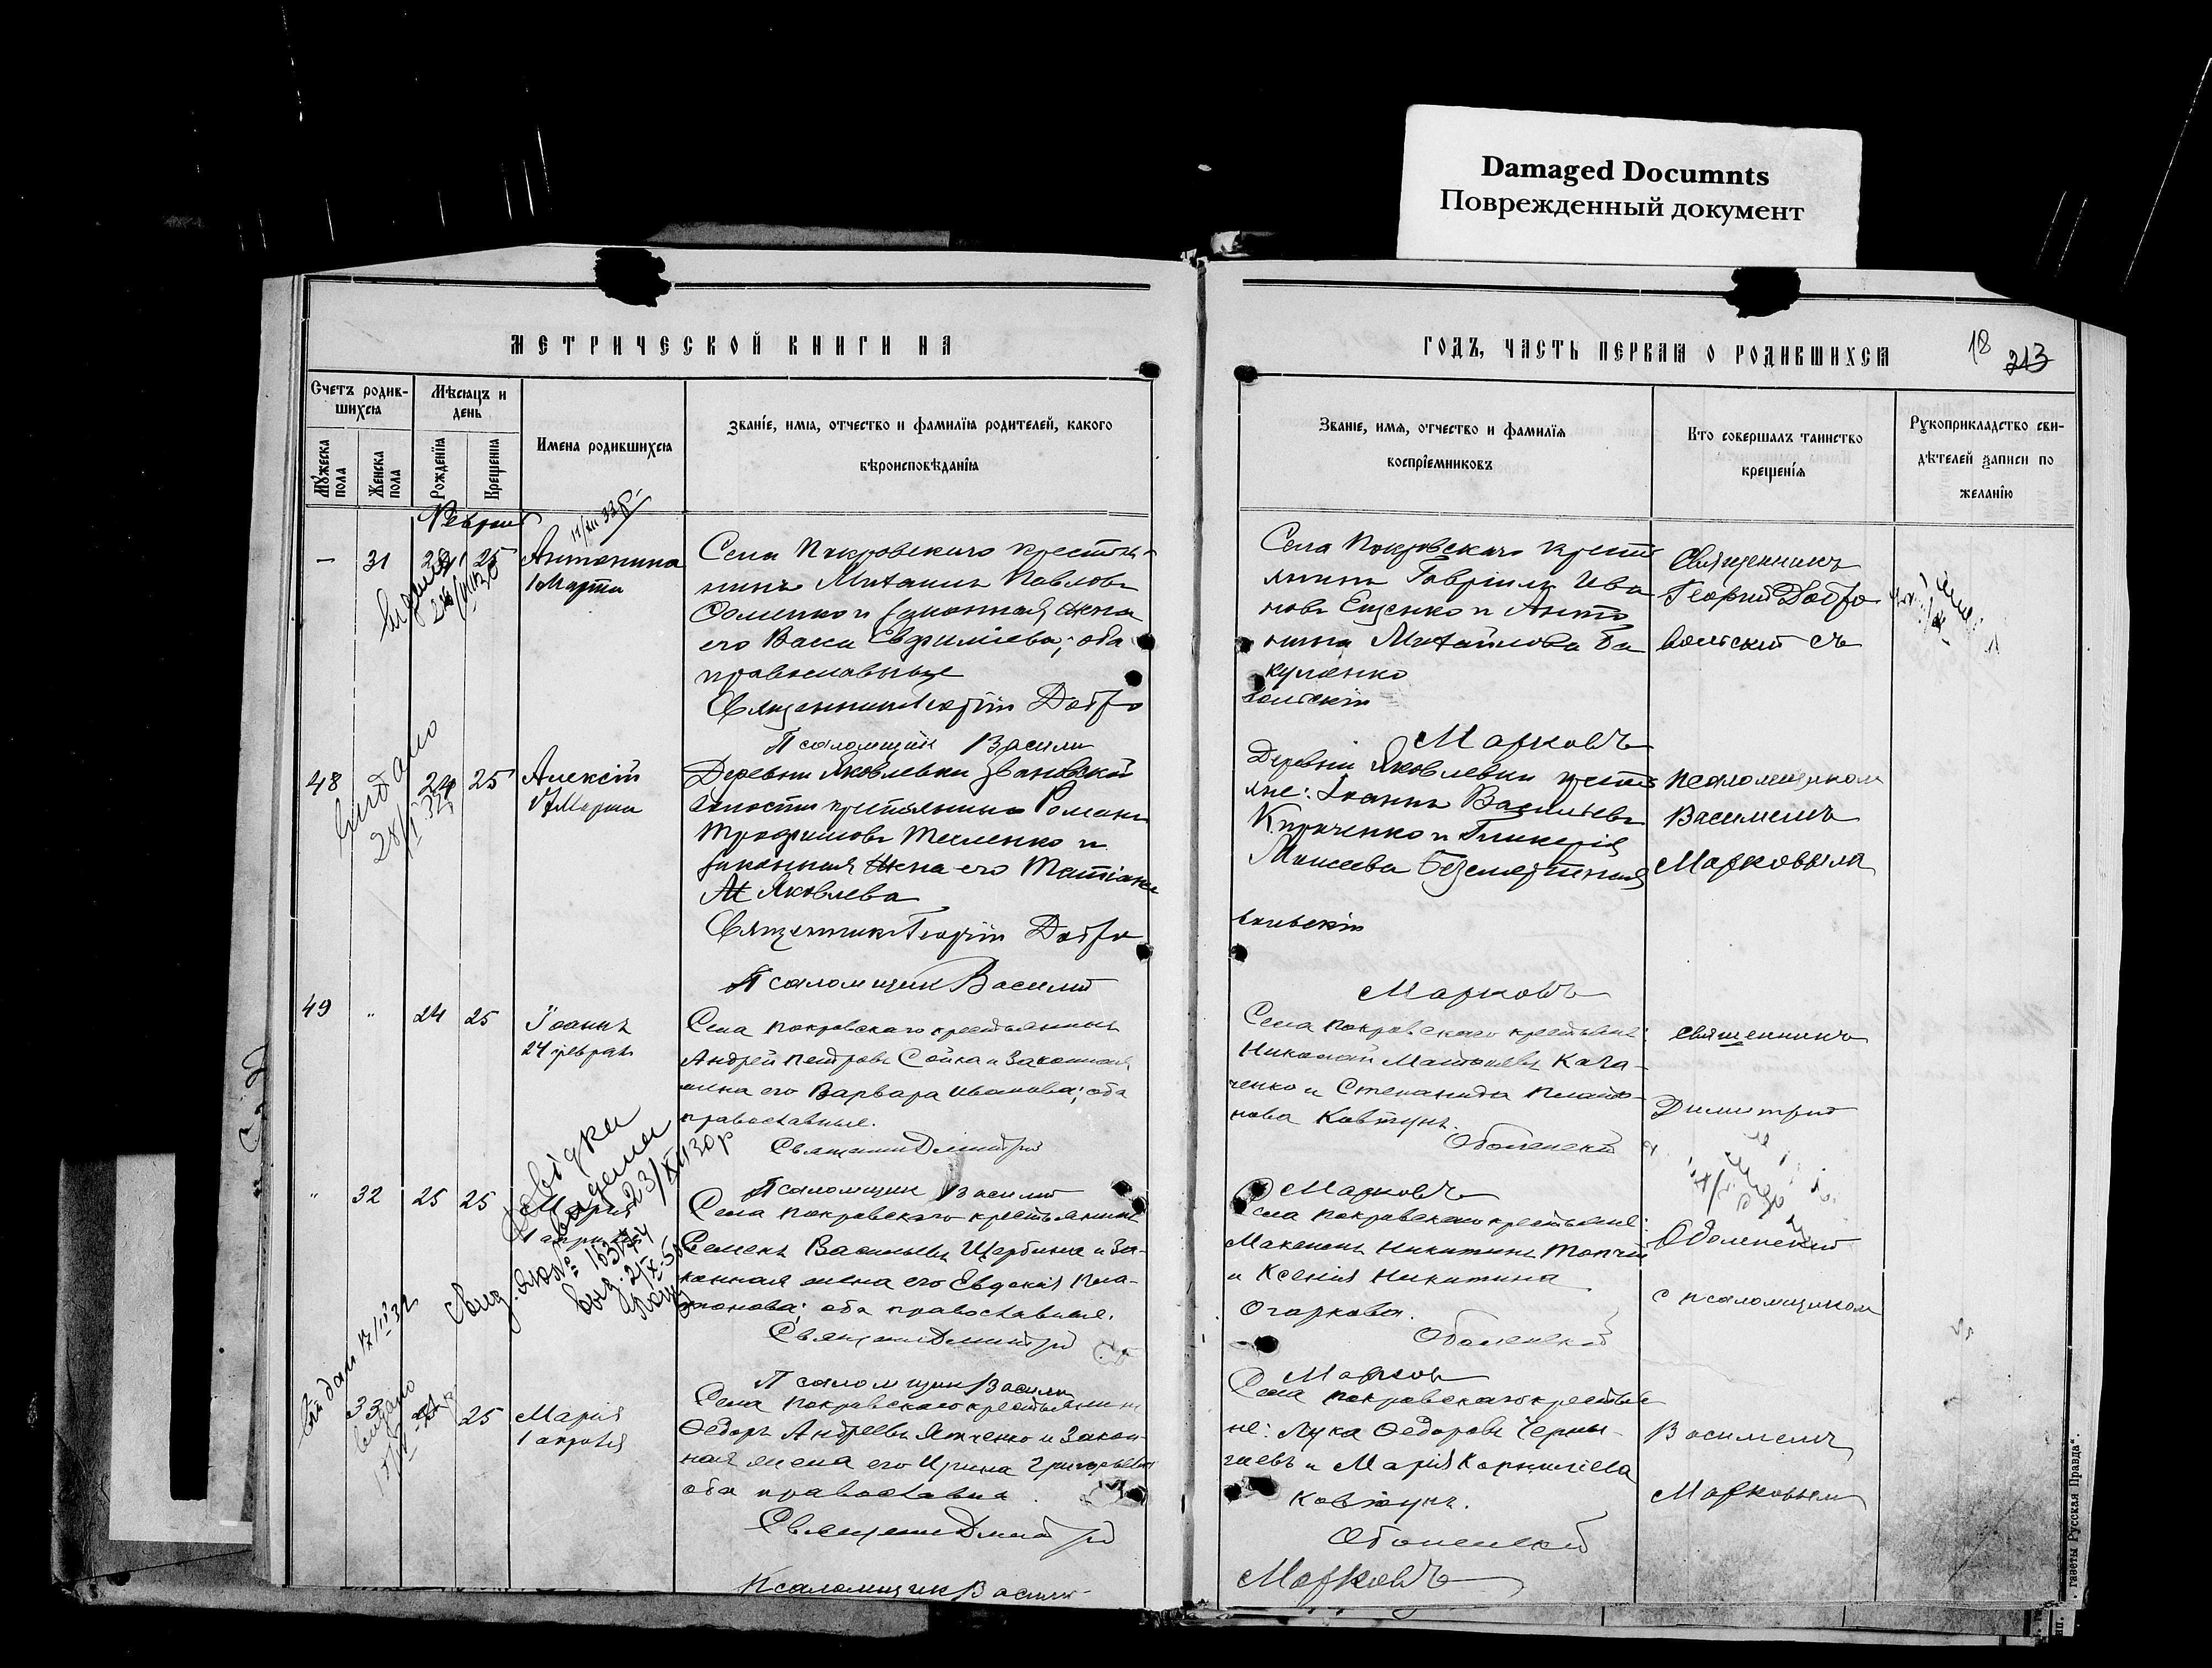 Damaged Documnts
Поврежденный документ
МЕТРИЧЕСКОЙ КНИГИ НА
ГОДЪ, ЧАСТЬ ПЕРВАЯ О РОДИВШИХСЯ
18
213
Счетъ родив-
шихся
Мѣсяцъ и
день
Мужеска пола
Женска пола
Рожденія
Крещенія
Имена родившихся
Званіе, имя, отчество и фамилія родителей, какого
вѣроисповѣданія
Званіе, имя, отчество и фамилія
воспріемниковъ
Кто совершалъ таинство
крещенія
Рукоприкладство сви-
дѣтелей записи по
желанію
31
25
Антонина
1 Марта
Села Покровскаго крестья-
нинъ Михаилъ Павловъ
и законная жена
его Васса Евфиміева, оба
православные
Священникъ Георгій Добро
Псаломщик Василий
Села Покровскаго кресть
яне Гавріилъ Ива
новъ Ещенко и Анто
нина Михайлова Ба
куленко
вольскій
Марковъ
Священникъ
Георгий Добро
вольский съ
видано
48
24
25
Алексій
Деревни Яковлевки Звановской
волости крестьянинъ Романъ
Трофимовъ Телленко и
законная жена его Татіана
Яковлева
Священникъ Георгій Добро
Псаломщик Василий
Деревни Яковлевки кресть
яне: Іоаннъ Васильевъ
Кириченко и Гликерія
Моисеева Безсмертная
вольскій
Марковъ
псаломщиком
Василиемъ
Марковымъ
49
"
24
25
Іоаннъ
24 февраля
Села Покровскаго крестьянинъ
Андрей Петровъ Сойка и законная
жена его Варвара Иванова; оба
православные.
Священник Дмитрий
Псаломщик Василий
Села Покровскаго крестьяне:
Николай Матвіевъ Каза-
ченко и Степанида Плато-
нова Ковтунъ.
Оболенский
Марковъ
священникъ
Димитрий
Оболенский
с псаломщиком
Василием
Марковым
"
32
25
25
Мария
1 апреля
Довідка
видана
23/XII 30 р
Села Покровскаго крестьянинъ
Семенъ Васильевъ Щербина и за-
конная жена его Евдокія Пла-
тонова; оба православные.
Священник Дмитрий
Псаломщик Василий
Села Покровскаго крестьяне:
Максимъ Никитинъ Топчий
и Ксенія Никитина
Огаркова.
Оболенский
Марков
33
25
Марія
1 апреля
Села Покровскаго крестьянинъ
Федоръ Андреевъ Яценко и закон-
ная жена его Ирина Григорьева
оба православные.
Священник Дмитрий
Псаломщик Василий
Села Покровскаго крестья
не: Лука Федоровъ Черны-
шевъ и Марія Корнилієва
Ковтунъ.
Оболенский
Марковъ
газеты „Русская Правда“.